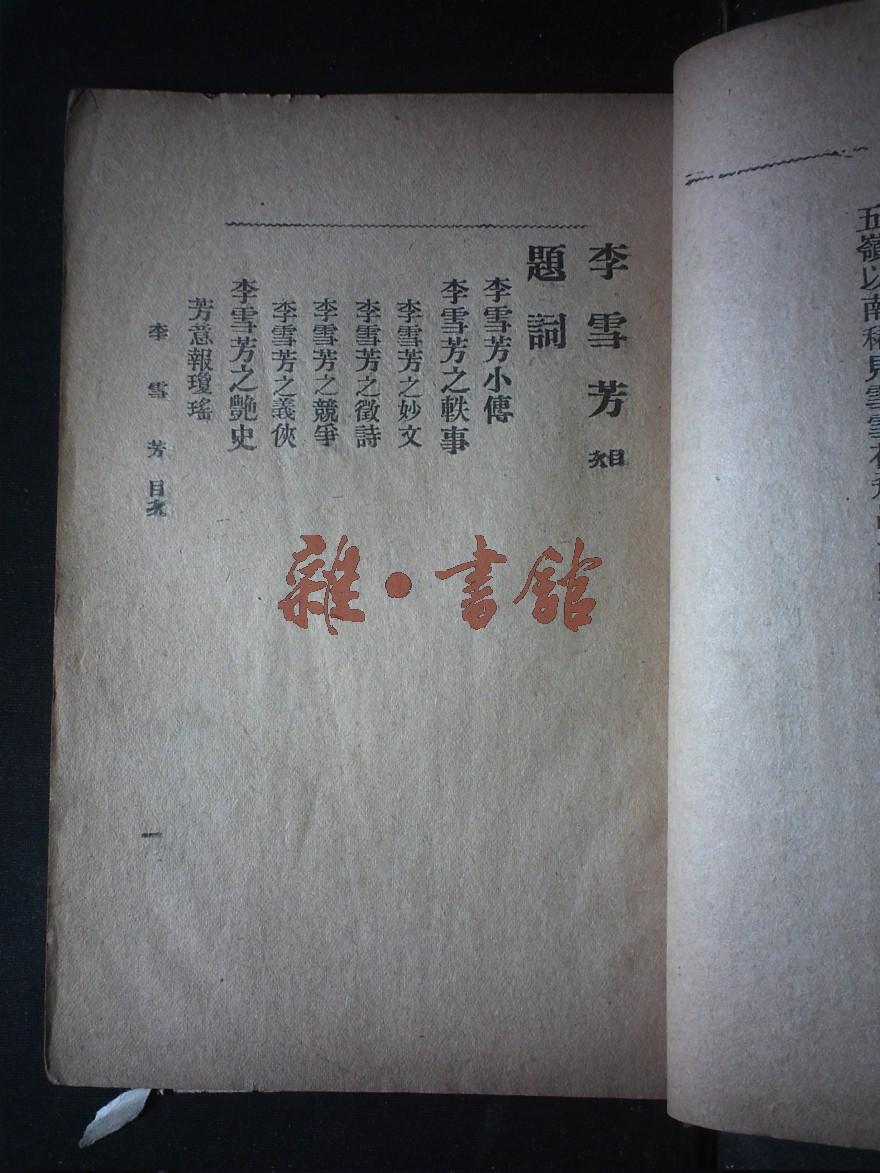 五嶺以南稀見雪雪
李雪芳目次
題詞
李雪芳小傳
李雪芳之軼事
李雪芳之妙文
李雪芳之徵詩
李雪芳之競爭
李雪芳之義俠
李雪芳之艷史
芳意報瓊瑤
李雪芳目次
一
雜·書館